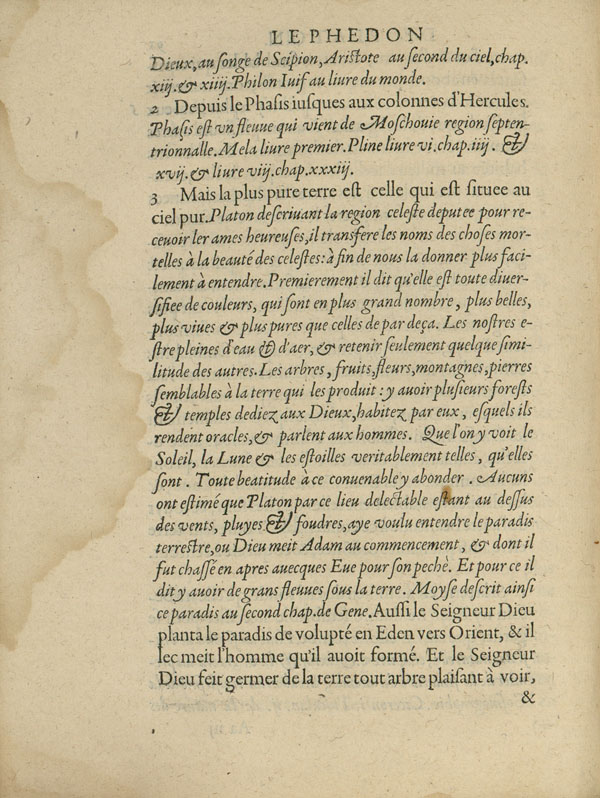 LE PHEDON
Dieux, au songe de Scipion, Aristote au second du ciel, chap.
xiij. & xiiij. Philon Iuif au liure du monde.
2 Depuis le Phasis iusques aux colonnes d'Hercules.
Phasis est vn fleuue qui vient de Moschouie region septen-
trionnalle. Mela liure premier. Pline liure vi. chap. iiij. &
xvij. & liure viij. chap. xxxiij.
3 Mais la plus pure terre est celle qui est situee au
ciel pur. Platon descriuant la region celeste deputee pour re-
ceuoir ler ames heureuses, il transfere les noms des choses mor-
telles à la beauté des celestes: à fin de nous la donner plus faci-
lement à entendre. Premierement il dit qu'elle est toute diuer-
sifiee de couleurs, qui sont en plus grand nombre, plus belles,
plus viues & plus pures que celles de par deça. Les nostres e-
stre pleines d'eau & d'aer, & retenir seulement quelque simi-
litude des autres. Les arbres, fruits, fleurs, montagnes, pierres
semblables à la terre qui les produit: y auoir plusieurs forests
& temples dediez aux Dieux, habitez par eux, esquels ils
rendent oracles, & parlent aux hommes. Que l'on y voit le
Soleil, la Lune & les estoilles veritablement telles, qu'elles
sont. Toute beatitude à ce conuenable y abonder. Aucuns
ont estimé que Platon par ce lieu delectable estant au dessus
des vents, pluyes & foudres, aye voulu entendre le paradis
terrestre, ou Dieu meit Adam au commencement, & dont il
fut chassé en apres auecques Eue pour son peché. Et pour ce il
dit y auoir de grans fleuues sous la terre. Moyse descrit ainsi
ce paradis au second chap. de Gene. Aussi le Seigneur Dieu
planta le paradis de volupté en Eden vers Orient, & il
lec meit l'homme qu'il auoit formé. Et le Seigneur
Dieu feit germer de la terre tout arbre plaisant à voir,
&